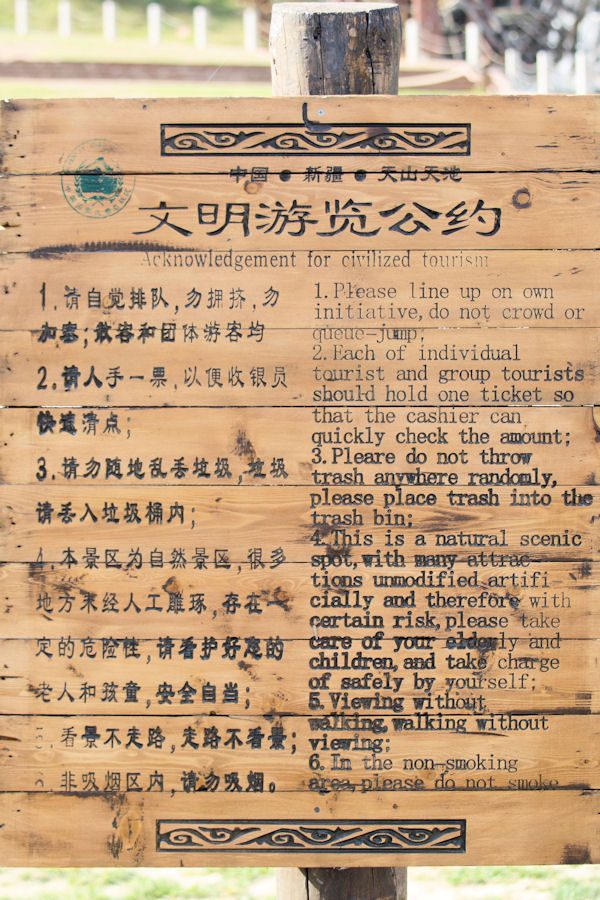 中国 ● 新疆 ● 天山天地
文明游览公约
Acknowledgement for civilized tourism
1.请自觉排队,勿拥挤,勿
加塞;散客和团体游客均
2.请人手一票,以便收银员
快速清点;
3.请勿随地乱丢垃圾,垃圾
请丢入垃圾桶内;
4.本景区为自然景区,很多
地方未经人工雕琢,存在一
定的危险性,请看护好您的
老人和孩童,安全自当;
5.看景不走路,走路不看景;
6.非吸烟区内,请勿吸烟。
1.Please line up on own
initiative,do not crowd or
queue-jump;
2.Each of individual
tourist and group tourists
should hold one ticket so
that the cashier can
quickly check the amount;
3.Pleare do not throw
trash anywhere randomly,
please place trash into the
trash bin;
4.This is a natural scenic
spot,with many attrac-
tions unmodified artifi-
cially and therefore with
certain risk,please take
care of your elderly and
children,and take charge
of safely by yourself;
5.Viewing without
walking,walking without
viewing;
6.In the non-smoking
area,please do not smoke